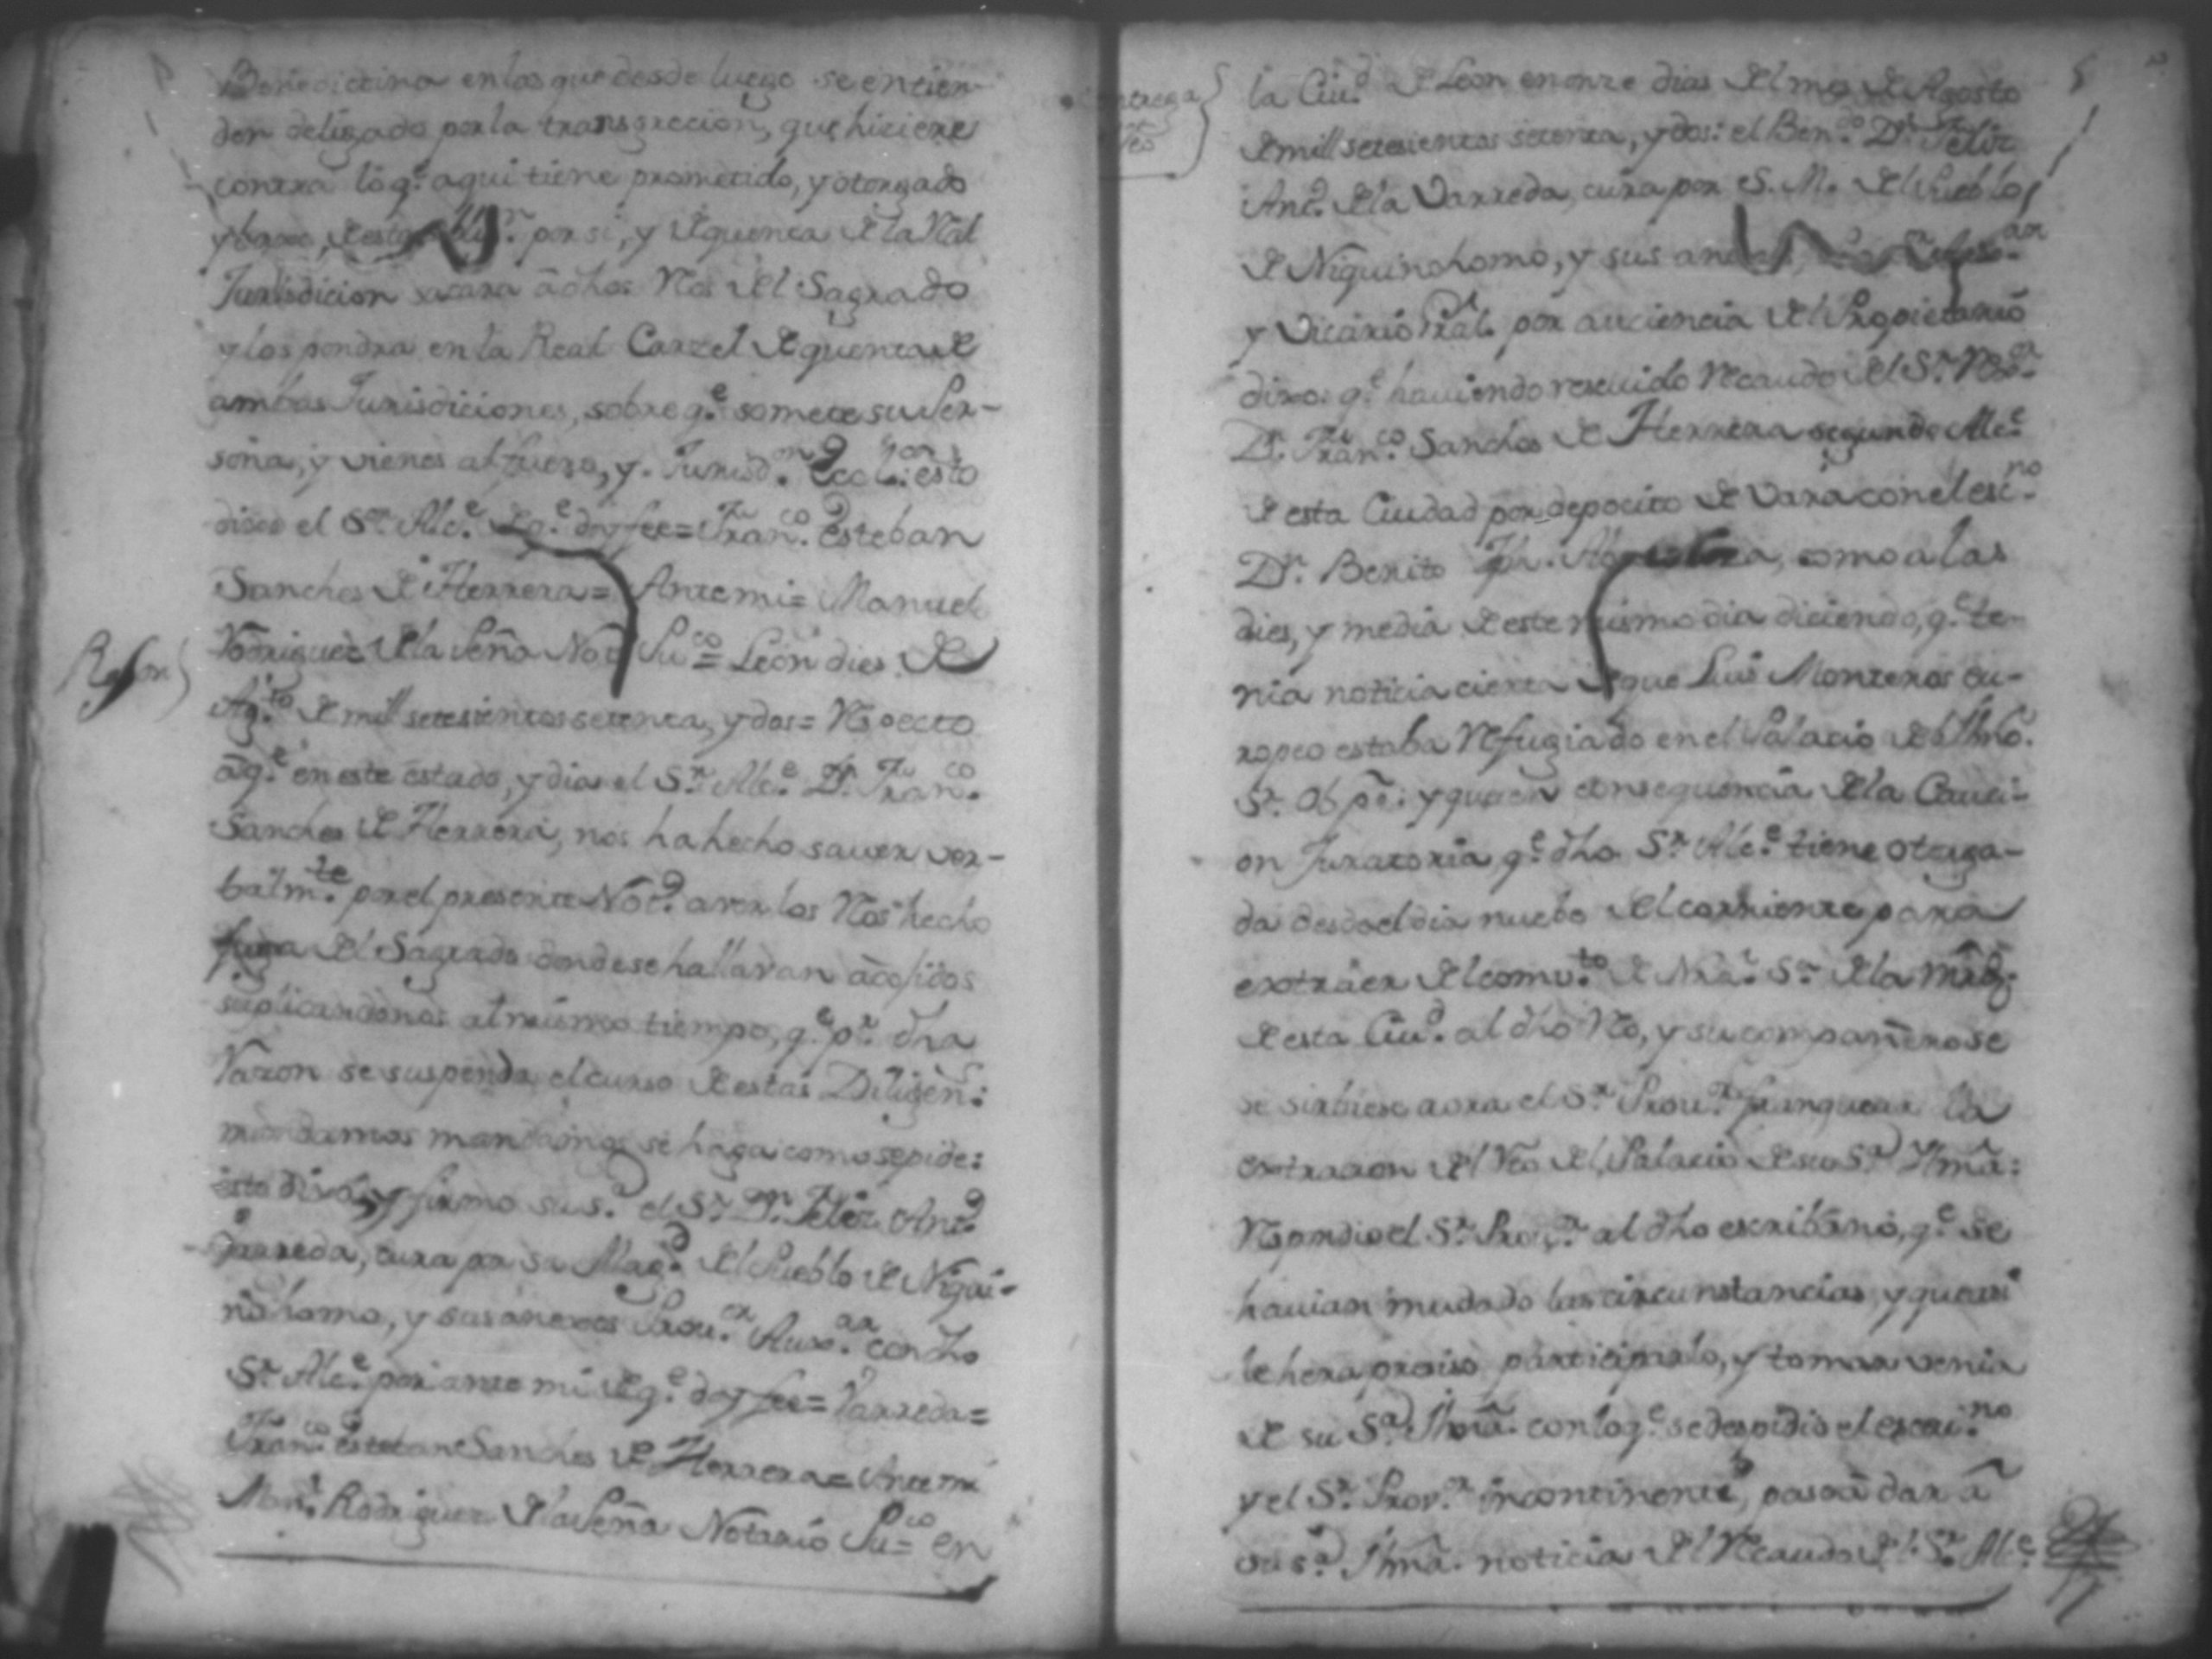 Benedictina en las que desde luego se entien-
der deligado por la transgrecion, que hiciere
contra lo q.e aqui tiene prometido, y otorgado
por si, y de quenta de la Ral
Jurisdicion sacara â dhos Rós del Sagrado
y los pondra en la Real Carzel de quenta de
ambas Jurisdiciones, sobre q.e somete su Per-
sona, y vienes al fuero, y Jurisd.on Eccl. esto
dixo el S.r Alc.e de q.e doy fee = Fran.co Esteban
Sanches de Herrera = Ante mi = Manuel
Rodriguez de la Peña Not.o Pu.co = Leon dies de
Rason
Ag.to de mill setesientos setenta, y dos = Respecto
â q.e en este estado, y dias el S.r Alc.e D.n Fran.co
Sanches de Herrera, nos ha hecho saver ver-
balm.te por el presente Not.o aver los Rós hecho
fuga del Sagrado donde se hallavan acojidos
suplicandonos al mismo tiempo, q.e p.r dha
Razon se suspenda el curso de estas Diligen:
mandamos se haga como se pide:
esto dixo, y firmo su s.a el S.r D.n Felix Ant.o
Varreda, cura por su Mag.d del Pueblo de Niqui-
nohomo, y sus anexos Prou.or Aux.ar con dho
S.r Alc.e por ante mi de q.e doy fee = Varreda =
Fran.co Esteban Sanches de Herrera = Ante mi
Man.l Rodriguez de la Peña Notario Pu.co = en
la Ciu.d de Leon en onze dias del mes de Agosto
de mill setesientos setenta, y dos: el Ben.do D.n Felix
Ant.o de la Varreda, cura por S. M. del Pueblo
de Niquinohomo, y sus anexos,
y Vicario Gral. por auciencia del Propietario
dixo: q.e haviendo resevido Recaudo del S.r Reg.or
D.n Fran.co Sanches de Herrera segundo Alc.e
de esta Ciudad por depocito de Vara con el esc.no
D.n Benito Jph. como a las
dies, y media de este mismo dia diciendo, q.e te-
nia noticia cierta de que Luis Monteros eu-
ropeo estaba Refugiado en el Palacio del Yllmô.
S.r Obpô: y que en consequencia de la Cauci-
on Juratoria, q.e dho S.r Alc.e tiene otorga-
da desde el dia nuebe del corriente para
extraer del comv.to de Nra. S.ra de la Mrd.
de esta Ciu.d al dho Ró, y su compañero se
se sirbiese aora el S.r Prou.or franquear la
extracion del Reo del Palacio de su S.a Yllmâ:
Respondio el S.r Prou.or al dho escribano, q.e se
havian mudado las circunstancias, y que asi
le hera preciso participarlo, y tomar venia
de su S.a Yllmâ. con lo q.e se despidio el escri.no
y el S.r Prov.or incontinenti, paso â dar â
su S.a Yllmâ. noticia del Recaudo del S.r Alc.e